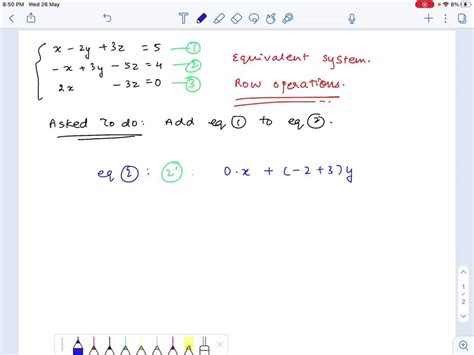 8:50 PM Wed 26 May
8%
x - 2y + 3z = 5 ①
-x + 3y - 5z = 4 ②
2x - 3z = 0 ③
Equivalent system.
Row operations.
Asked To do: Add eq ① to eq ②.
eq ②: ②': 0.x + (-2+3)y
1
2